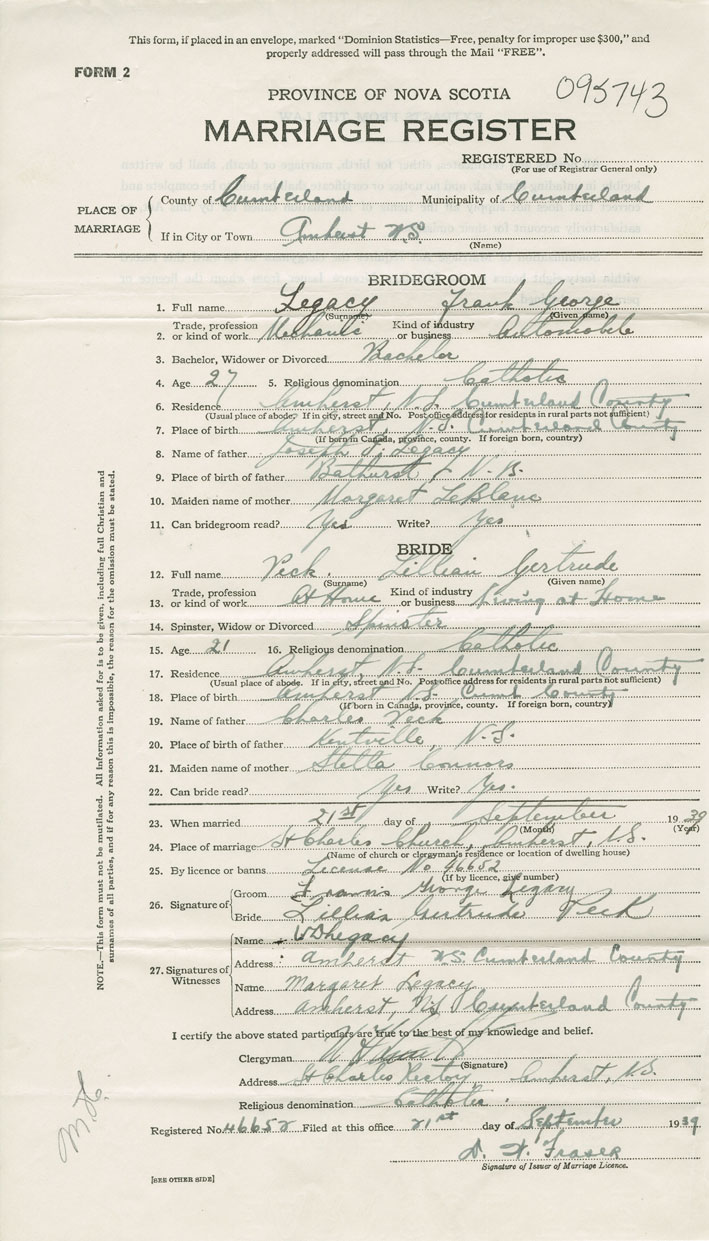 This form, if placed in an envelope, marked "Dominion Statistics—Free, penalty for improper use $300," and
properly addressed will pass through the Mail "FREE".
FORM 2
095743
PROVINCE OF NOVA SCOTIA
MARRIAGE REGISTER
REGISTERED No.
(For use of Registrar General only)
PLACE OF MARRIAGE
County of Cumberland Municipality of Cumberland
If in City or Town Amherst N.S.
(Name)
BRIDEGROOM
1. Full name Legacy Frank George
(Surname) (Given name)
2. Trade, profession or kind of work Mechanic Kind of industry or business Automobile
3. Bachelor, Widower or Divorced Bachelor
4. Age 27 5. Religious denomination Catholic
6. Residence Amherst, N.S. Cumberland County
(Usual place of abode. If in city, street and No. Post office address for residents in rural parts not sufficient)
7. Place of birth Amherst, N.S. Cumberland County
(If born in Canada, province, county. If foreign born, country)
8. Name of father Joseph T. Legacy
9. Place of birth of father Bathurst, N.B.
10. Maiden name of mother Margaret LeBlanc
11. Can bridegroom read? Yes Write? Yes
BRIDE
12. Full name Peck. Lillian Gertrude
(Surname) (Given name)
13. Trade, profession or kind of work At Home Kind of industry or business Living at Home
14. Spinster, Widow or Divorced Spinster
15. Age 21 16. Religious denomination Catholic
17. Residence Amherst, N.S. Cumberland County
(Usual place of abode. If in city, street and No. Post office address for residents in rural parts not sufficient)
18. Place of birth Amherst N.S. Cumb County
(If born in Canada, province, county. If foreign born, country)
19. Name of father Charles Peck
20. Place of birth of father Kentville, N.S.
21. Maiden name of mother Stella Connors
22. Can bride read? Yes Write? Yes.
23. When married 21st day of September 1939
(Month) (Year)
24. Place of marriage St Charles Church, Amherst, N.S.
(Name of church or clergyman's residence or location of dwelling house)
25. By licence or banns License No 46652
(If by licence, give number)
26. Signature of
Groom Francis George Legacy
Bride Lillian Gertrude Peck
27. Signatures of Witnesses
Name Legacy
Address Amherst N.S. Cumberland County
Name Margaret Legacy
Address Amherst, N.S. Cumberland County
I certify the above stated particulars are true to the best of my knowledge and belief.
Clergyman
(Signature)
Address St Charles Rectory Amherst, N.S.
Religious denomination Catholic.
Registered No. 46652 Filed at this office 21st day of September 1939
D. Fraser
Signature of Issuer of Marriage Licence.
[SEE OTHER SIDE]
NOTE.—This form must not be mutilated. All information asked for is to be given, including full Christian and
surnames of all parties, and if for any reason this is impossible, the reason for the omission must be stated.